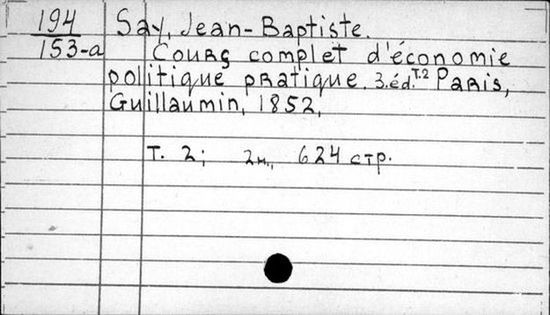 194
153-а
Say, Jean-Baptiste.
Cours complet d'économie
politique pratique. 3.éd. T.2 Paris,
Guillaumin, 1852,
Т. 2; 2н., 624 стр.